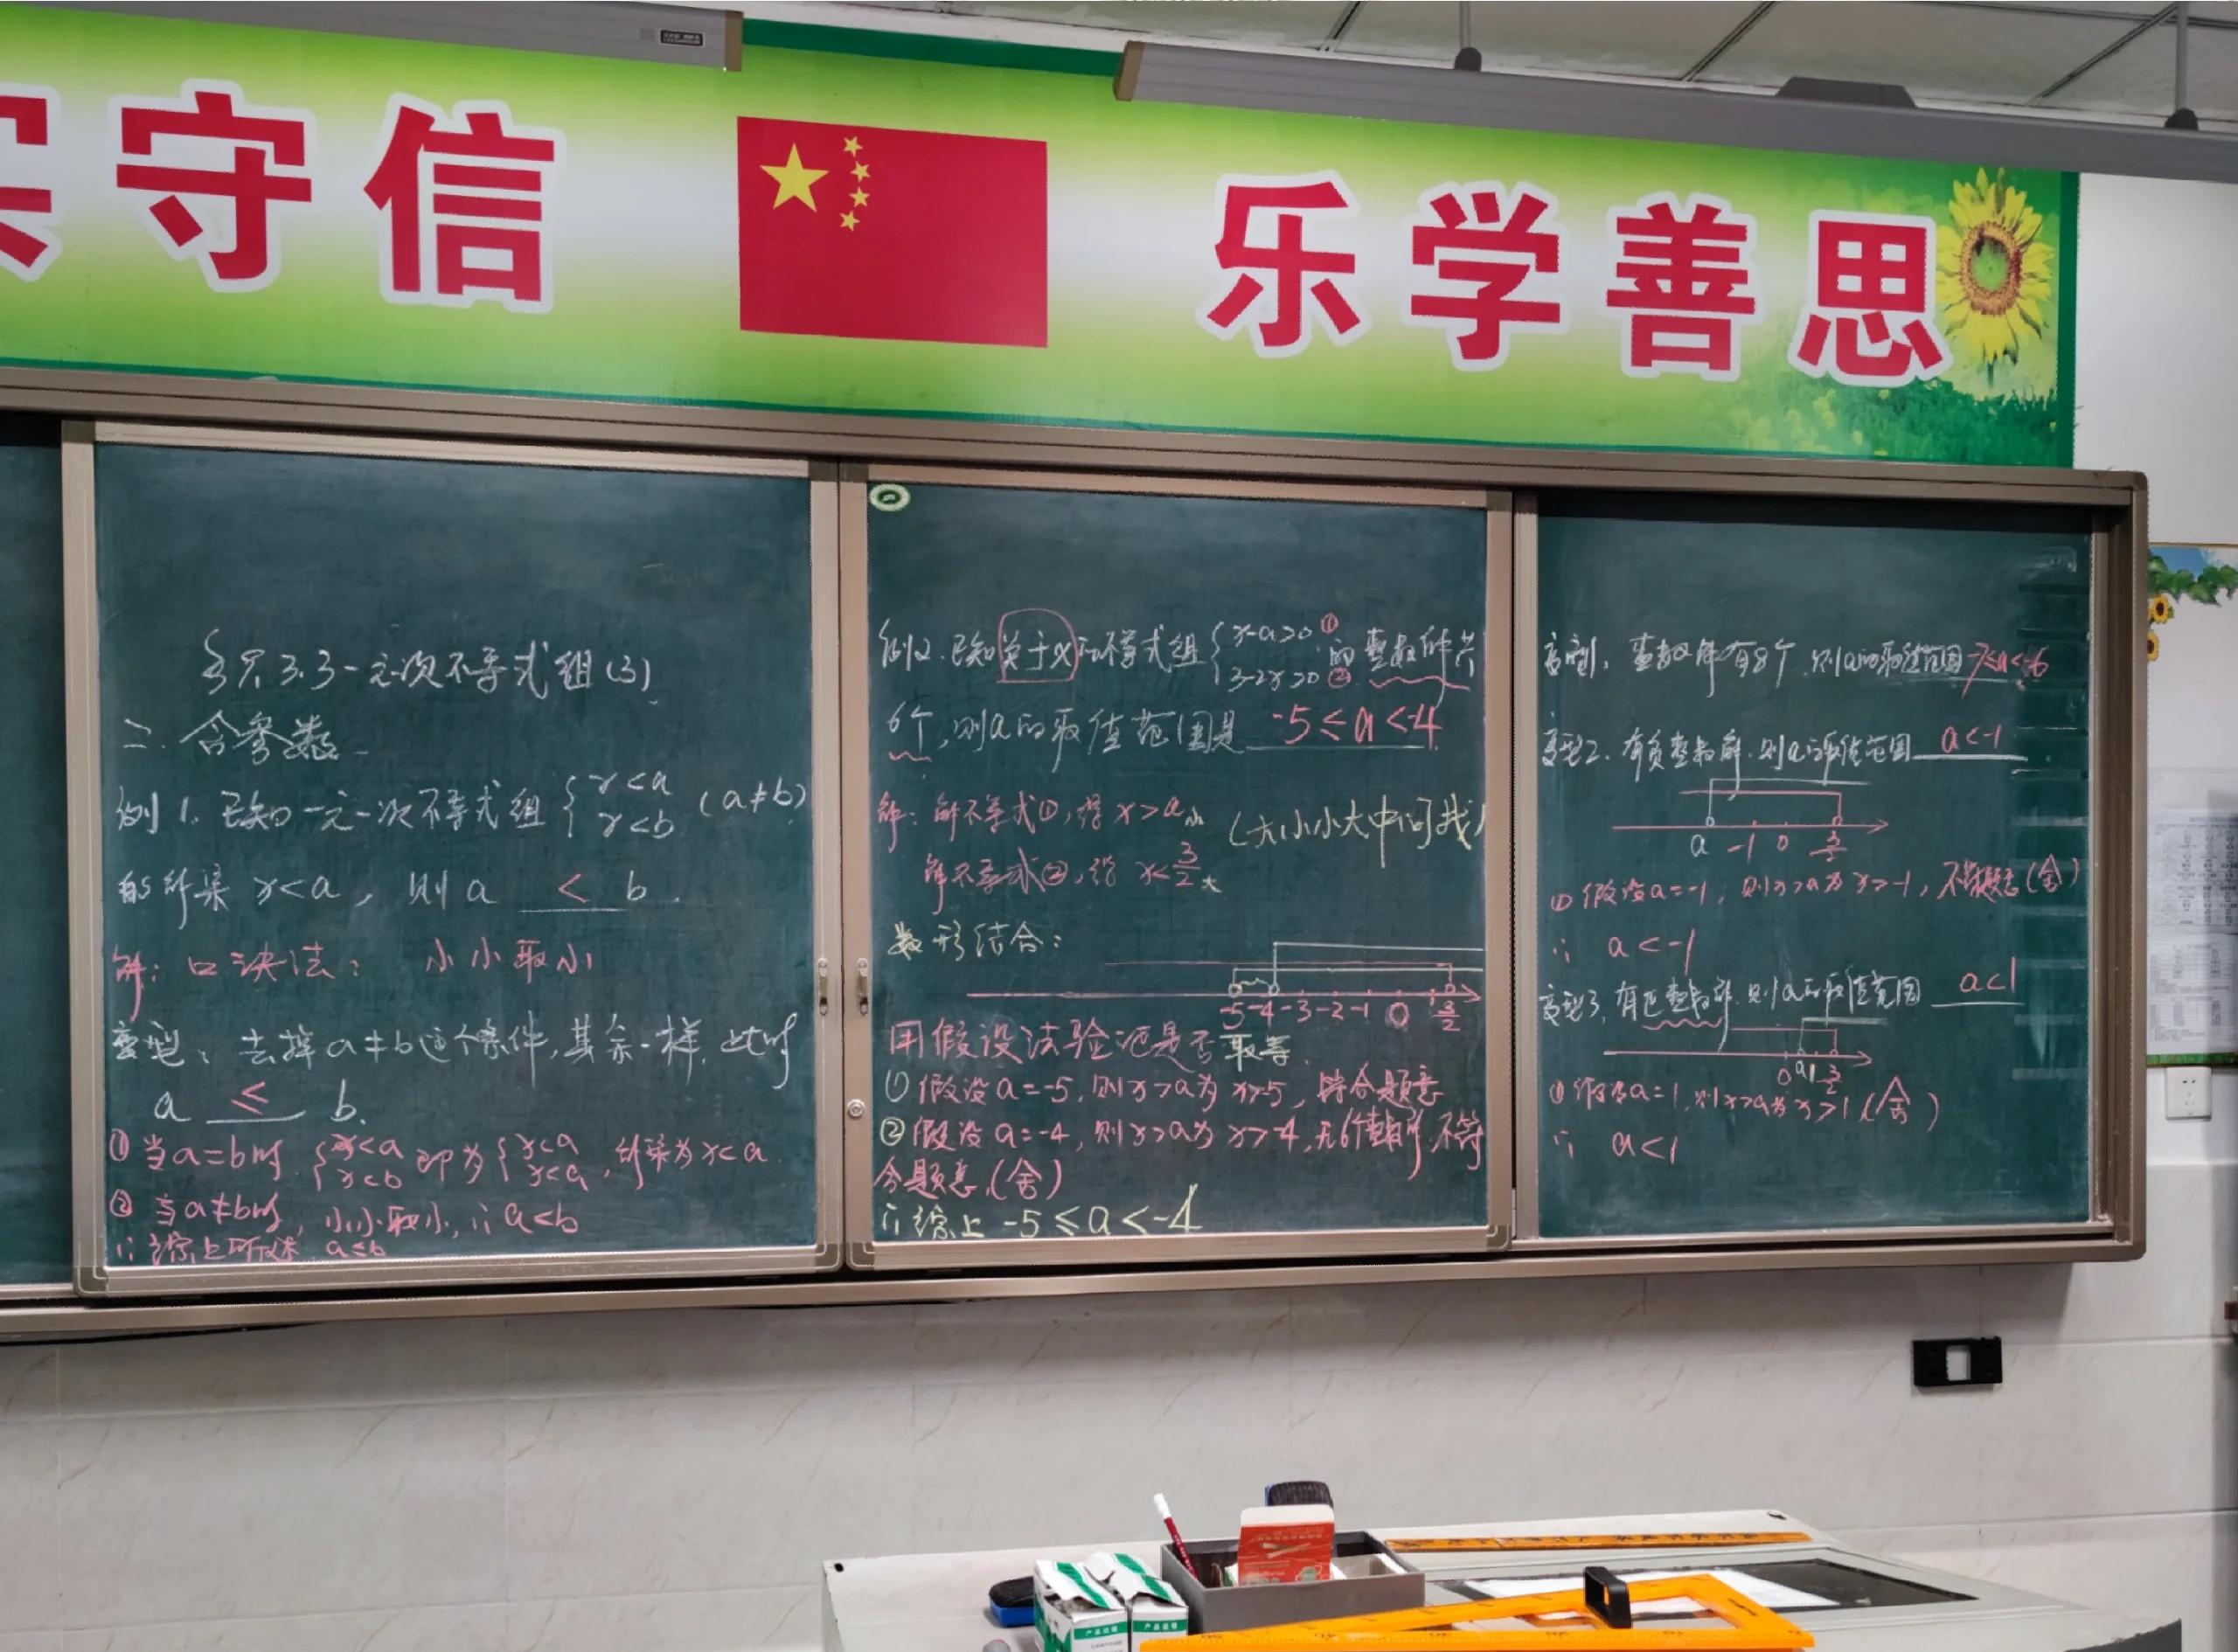 守信
乐学善思
§8.3.3 一元一次不等式组(3)
二. 含参数
例1. 已知一元一次不等式组 { x<a x<b (a≠b)
的解集 x<a, 则a < b.
解: 口决法: 小小取小
变型: 去掉a≠b这个条件,其余一样, 此时
a ≤ b.
① 当a=b时 { x<a x<b 即为 { x<a x<a , 解集为x<a.
② 当a≠b时, 小小取小, ∴ a<b
∴ 综上所述 a≤b
例2. 已知关于x的不等式组 { x-a>0 ① 3-2x>0 ② 的整数解共
6个, 则a的取值范围是 -5≤a<-4
解: 解不等式①, 得 x>a 小 (大小小大中间找)
解不等式②, 得 x<3/2 大
数形结合:
-5 -4 -3 -2 -1 0 1 3/2
用假设法验证是否取等.
① 假设 a=-5, 则x>a为 x>-5, 符合题意
② 假设 a=-4, 则x>a为 x>-4, 无6个整数解, 不符
合题意, (舍)
∴ 综上 -5≤a<-4
变型1. 整数解有8个, 则a的取值范围 -7≤a<-6
变型2. 有负整数解, 则a的取值范围 a<-1
a -1 0 3/2
① 假设a=-1, 则x>a为 x>-1, 不符题意(舍)
∴ a<-1
变型3. 有正整数解, 则a的取值范围 a<1
0 a 1 3/2
① 假设a=1, 则x>a为x>1 (舍)
∴ a<1